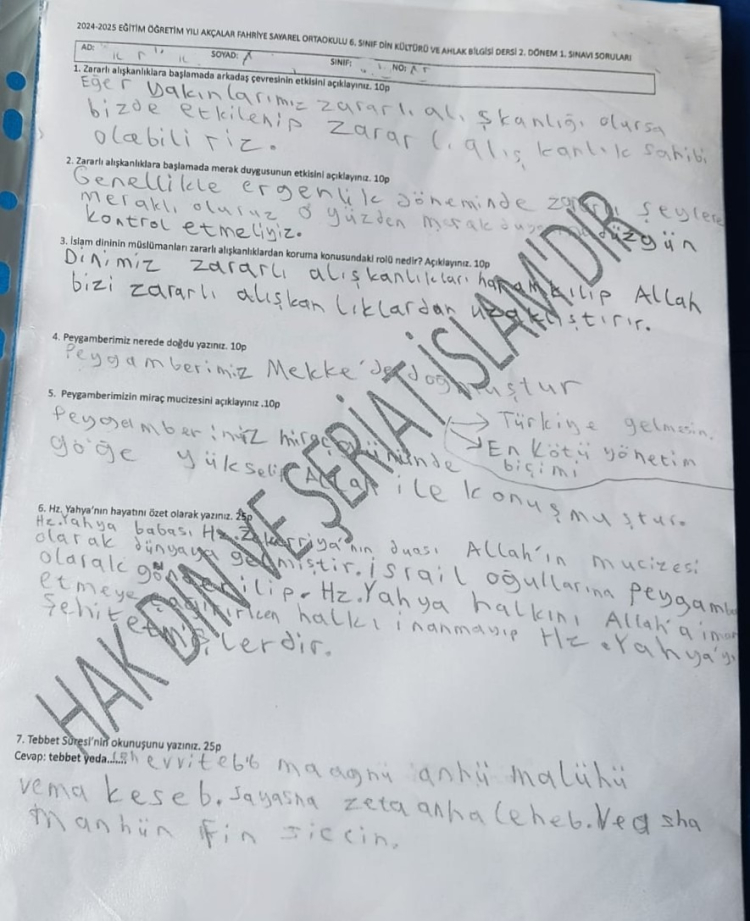 2024-2025 EĞİTİM ÖĞRETİM YILI AKÇALAR FAHRİYE SAYAREL ORTAOKULU 6. SINIF DİN KÜLTÜRÜ VE AHLAK BİLGİSİ DERSİ 2. DÖNEM 1. SINAVI SORULARI
AD: SOYAD: SINIF: NO:
1. Zararlı alışkanlıklara başlamada arkadaş çevresinin etkisini açıklayınız. 10p
Eğer yakınlarımız zararlı alışkanlığı olursa
bizde etkilenip zararlı alışkanlık sahibi
olabiliriz.
2. Zararlı alışkanlıklara başlamada merak duygusunun etkisini açıklayınız. 10p
Genellikle ergenlik döneminde zararlı şeylere
meraklı oluruz o yüzden merak düzgün
kontrol etmeliyiz.
3. İslam dininin müslümanları zararlı alışkanlıklardan koruma konusundaki rolü nedir? Açıklayınız. 10p
Dinimiz zararlı alışkanlıkları haram kılıp Allah
bizi zararlı alışkanlıklardan uzaklıştırır.
4. Peygamberimiz nerede doğdu yazınız. 10p
Peygamberimiz Mekke'de doğmuştur
5. Peygamberimizin miraç mucizesini açıklayınız .10p
Peygamberimiz miraç gününde
göğe yükselip Allah ile konuşmuştur.
→ Türkiye gelmesin.
→ En kötü yönetim
biçimi
6. Hz. Yahya'nın hayatını özet olarak yazınız. 25p
Hz. Yahya babası Hz. Zekeriyya'nın duası Allah'ın mucizesi
olarak dünyaya gelmiştir. israil oğullarına peygamber
olarak gönderilip. Hz. Yahya halkını Allah'a iman
etmeye çağırırken halkı inanmayıp Hz. Yahya'yı
şehit etmişlerdir.
7. Tebbet Sûresi'nin okunuşunu yazınız. 25p
Cevap: tebbet yeda...... maagnü anhü malühü
vema keseb. Sayasna zeta anha leheb. Ve
manhün fin siccin.
HAK DİN VE ŞERİAT İSLAM'DIR